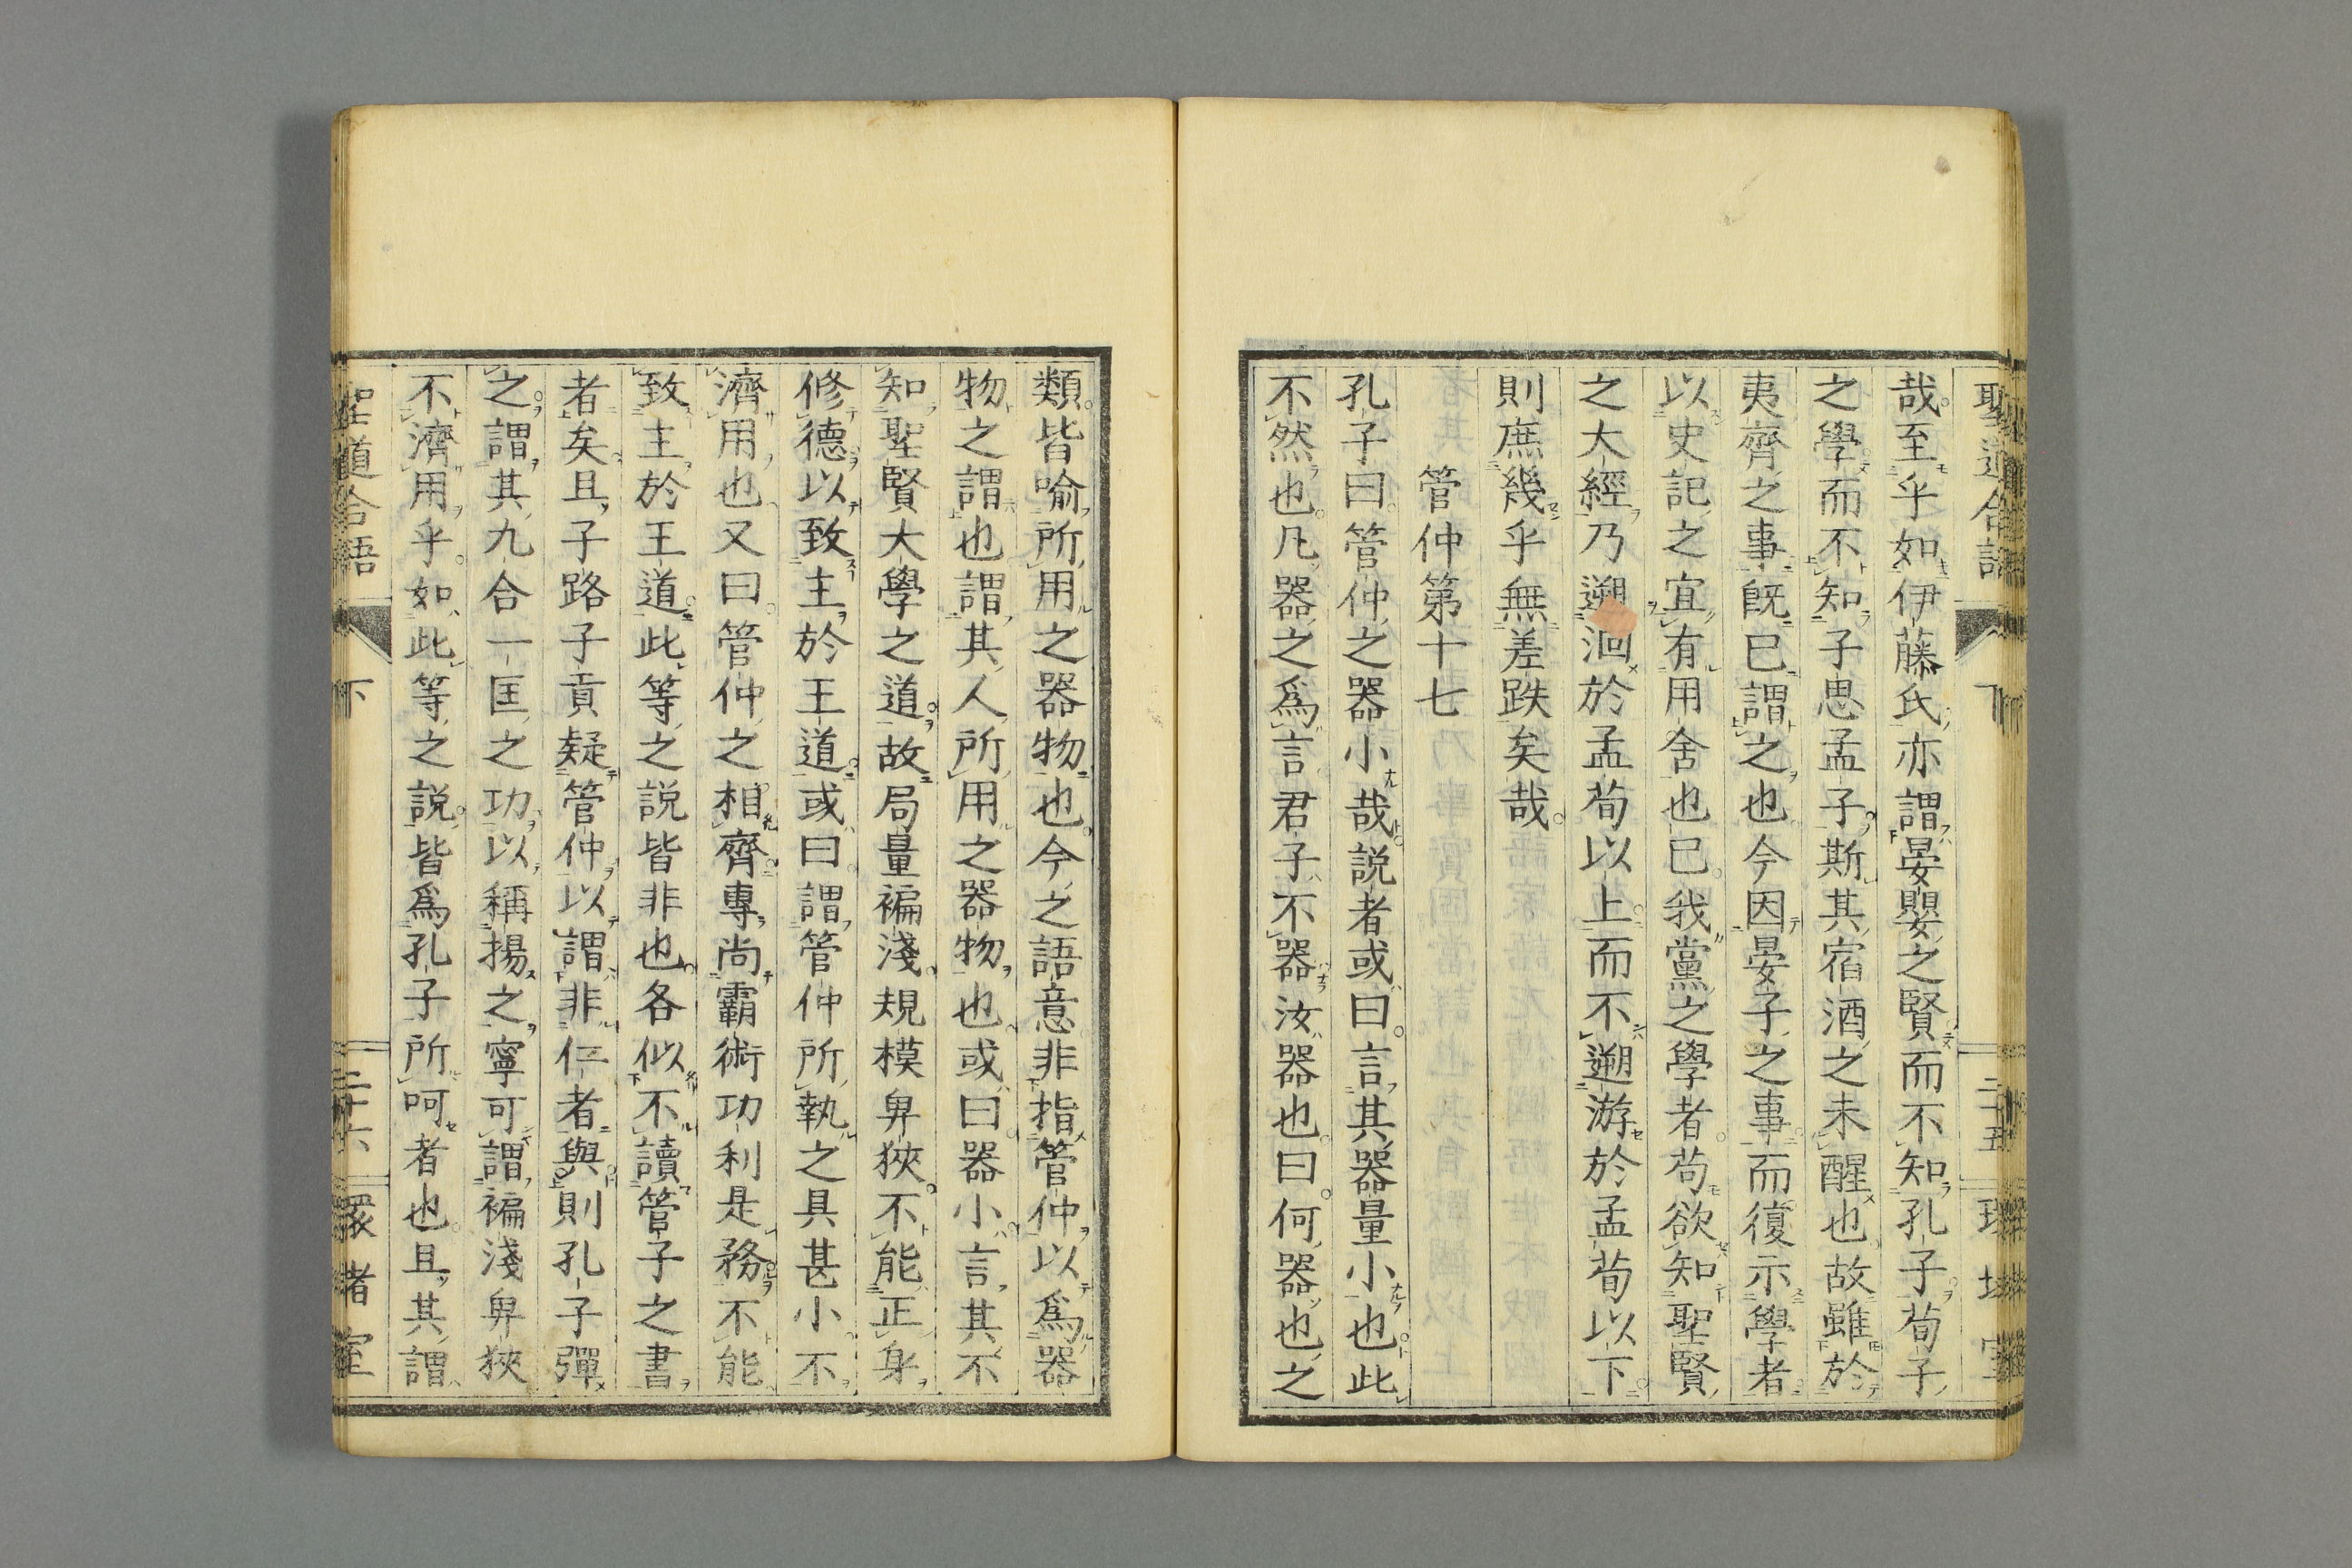 聖道合語 下 二十五
哉至乎如伊藤氏亦謂晏嬰之賢而不知孔子荀子
之學而不知子思孟子斯其宿酒之未醒也故雖於
夷齊之事既已謂之也今因晏子之事而復示學者
以史記之宜有用舍也已我黨之學者苟欲知聖賢
之大經乃遡洄於孟荀以上而不遡游於孟荀以下
則庶幾乎無差跌矣哉
管仲第十七
孔子曰管仲之器小哉説者或曰言其器量小也此
不然也凡器之爲言君子不器汝器也曰何器也之
類皆喻所用之器物也今之語意非指管仲以爲器
物之謂也謂其人所用之器物也或曰器小言其不
知聖賢大學之道故局量褊淺規模卑狹不能正身
修德以致主於王道或曰謂管仲所執之具甚小不
濟用也又曰管仲之相齊專尚霸術功利是務不能
致主於王道此等之説皆非也各似不讀管子之書
者矣且子路子貢疑管仲以謂非仁者與則孔子彈
之謂其九合一匡之功以稱揚之寧可謂褊淺卑狹
不濟用乎如此等之説皆爲孔子所呵者也且其謂
聖道合語 下 二十六